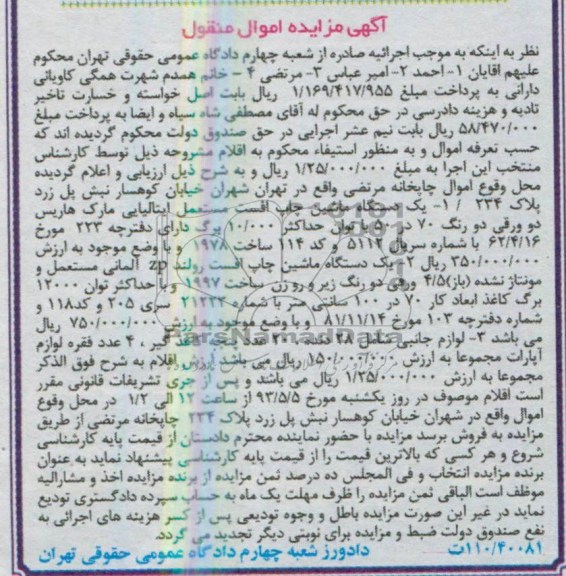 آگهی مزایده اموال منقول
نظر به اینکه به موجب اجرائیه صادره از شعبه چهارم دادگاه عمومی حقوقی تهران محکوم
علیهم اقایان ۱- احمد ۲- امیر عباس ۳- مرتضی ۴ - خانم همدم شهرت همگی کاویانی
دارانی به پرداخت مبلغ ۱/۱۶۹/۴۱۷/۹۵۵ ریال بابت اصل خواسته و خسارت تاخیر
تادیه و هزینه دادرسی در حق محکوم له آقای مصطفی شاه سیاه و ایضا به پرداخت مبلغ
۵۸/۴۷۰/۰۰۰ ریال بابت نیم عشر اجرایی در حق صندوق دولت محکوم گردیده اند که
حسب تعرفه اموال و به منظور استیفاء محکوم به اقلام مشروحه ذیل توسط کارشناس
منتخب این اجرا به مبلغ ۱/۲۵/۰۰۰/۰۰۰ ریال و به شرح ذیل ارزیابی و اعلام گردیده
محل وقوع اموال چاپخانه مرتضی واقع در تهران شهران خیابان کوهسار نبش پل زرد
پلاک ۲۳۴ / ۱- یک دستگاه ماشین چاپ افست مستعمل ایتالیایی مارک هاریس
دو ورقی دو رنگ ۷۰ در ۱۰۰ با توان حداکثر ۱۰/۰۰۰ برگ دارای دفترچه ۲۲۳ مورخ
۶۲/۴/۱۶ با شماره سریال ۵۱۱۲ و کد ۱۱۴ ساخت ۱۹۷۸ و با وضع موجود به ارزش
۳۵۰/۰۰۰/۰۰۰ ریال ۲- یک دستگاه ماشین چاپ افست رولند zp آلمانی مستعمل و
مونتاژ نشده (باز) ۴/۵ ورقی دو رنگ زیر و رو زن ساخت ۱۹۹۷ و با حداکثر توان ۱۲۰۰۰
برگ کاغذ ابعاد کار ۷۰ در ۱۰۰ سانتی متر با شماره ۲۱۲۳۲ سری ۲۰۵ و کد ۱۱۸ و
شماره دفترچه ۱۰۳ مورخ ۸۱/۱۱/۱۴ و با وضع موجود به ارزش ۷۵۰/۰۰۰/۰۰۰ ریال
می باشد ۳- لوازم جانبی شامل ۲۸ دنده، ۲۰۰ عدد پنجه کاغذ گیر، ۴۰ عدد فقره لوازم
آپارات مجموعا به ارزش ۱۵۰/۰۰۰/۰۰۰ ریال می باشد ارزش اقلام به شرح فوق الذکر
مجموعا به ارزش ۱/۲۵/۰۰۰/۰۰۰ ریال می باشد و پس از جری تشریفات قانونی مقرر
است اقلام موصوف در روز یکشنبه مورخ ۹۳/۵/۵ از ساعت ۱۲ الی ۱/۲ در محل وقوع
اموال واقع در شهران خیابان کوهسار نبش پل زرد پلاک ۲۳۴ چاپخانه مرتضی از طریق
مزایده به فروش برسد مزایده با حضور نماینده محترم دادستان از قیمت پایه کارشناسی
شروع و هر کسی که بالاترین قیمت را از قیمت پایه کارشناسی پیشنهاد نماید به عنوان
برنده مزایده انتخاب و فی المجلس ده درصد ثمن مزایده از برنده مزایده اخذ و مشارالیه
موظف است الباقی ثمن مزایده را ظرف مهلت یک ماه به حساب سپرده دادگستری تودیع
نماید در غیر این صورت مزایده باطل و وجوه تودیعی پس از کسر هزینه های اجرائی به
نفع صندوق دولت ضبط و مزایده برای نوبتی دیگر تجدید می گردد.
۱۱۰/۴۰۰۸۱ت دادورز شعبه چهارم دادگاه عمومی حقوقی تهران